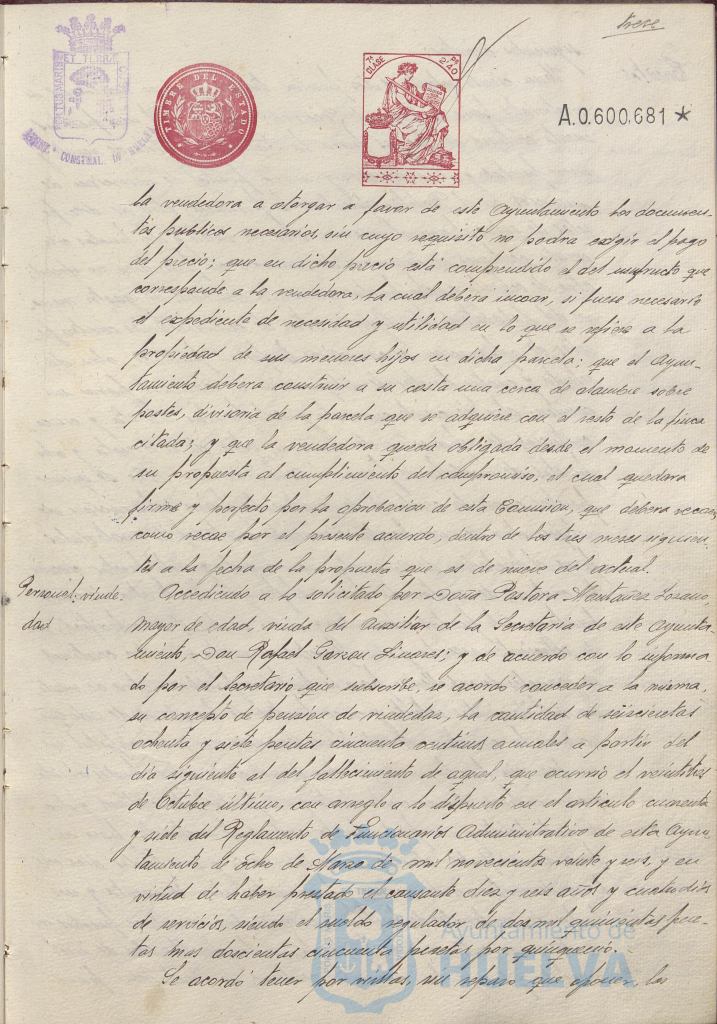 trece
PORTUS MARIS ET TERRÆ
TIMBRE DEL ESTADO
7ª CLASE
2'40 PS
A.0.600.681 *
la vendedora a otorgar a favor de este Ayuntamiento los documen-
tos publicos necesarios, sin cuyo requisito no podra exigir el pago
del precio; que en dicho precio está comprendido el del usufructo que
corresponde a la vendedora, la cual debera incoar, si fuese necesario
el expediente de necesidad y utilidad en lo que se refiere a la
propiedad de sus menores hijos en dicha parcela; que el Ayun-
tamiento debera construir a su costa una cerca de alambre sobre
postes, divisoria de la parcela que se adquiere con el resto de la finca
citada; y que la vendedora queda obligada desde el momento de
su propuesta al cumplimiento del compromiso, el cual quedara
firme y perfecto por la aprobacion de esta Comision, que debera recaer,
como recae por el presente acuerdo, dentro de los tres meses siguien-
tes a la fecha de la propuesta que es de nueve del actual.
Personal: viude-
dad
Accediendo a lo solicitado por Doña Pastora Montañez Lozano,
mayor de edad, viuda del Auxiliar de la Secretaria de este Ayunta-
miento, Don Rafael Garzon Linares; y de acuerdo con lo informa-
do por el Secretario que subscribe, se acordó conceder a la misma,
en concepto de pension de viudedad, la cantidad de seiscientas
ochenta y siete pesetas cincuenta centimos anuales a partir del
dia siguiente al del fallecimiento de aquel, que ocurrió el veintitres
de Octubre último, con arreglo a lo dispuesto en el articulo cuarenta
y siete del Reglamento de Funcionarios Administrativo de esta Ayun-
tamiento de Ocho de Marzo de mil novecientos veinte y seis, y en
virtud de haber prestado el causante diez y seis años y cuatro dias
de servicios, siendo el sueldo regulador de dos mil quinientas pese-
tas mas doscientas cincuenta pesetas por quinquenio.
Se acordó tener por vistas, sin reparo que oponer, las
Ayuntamiento de
HUELVA